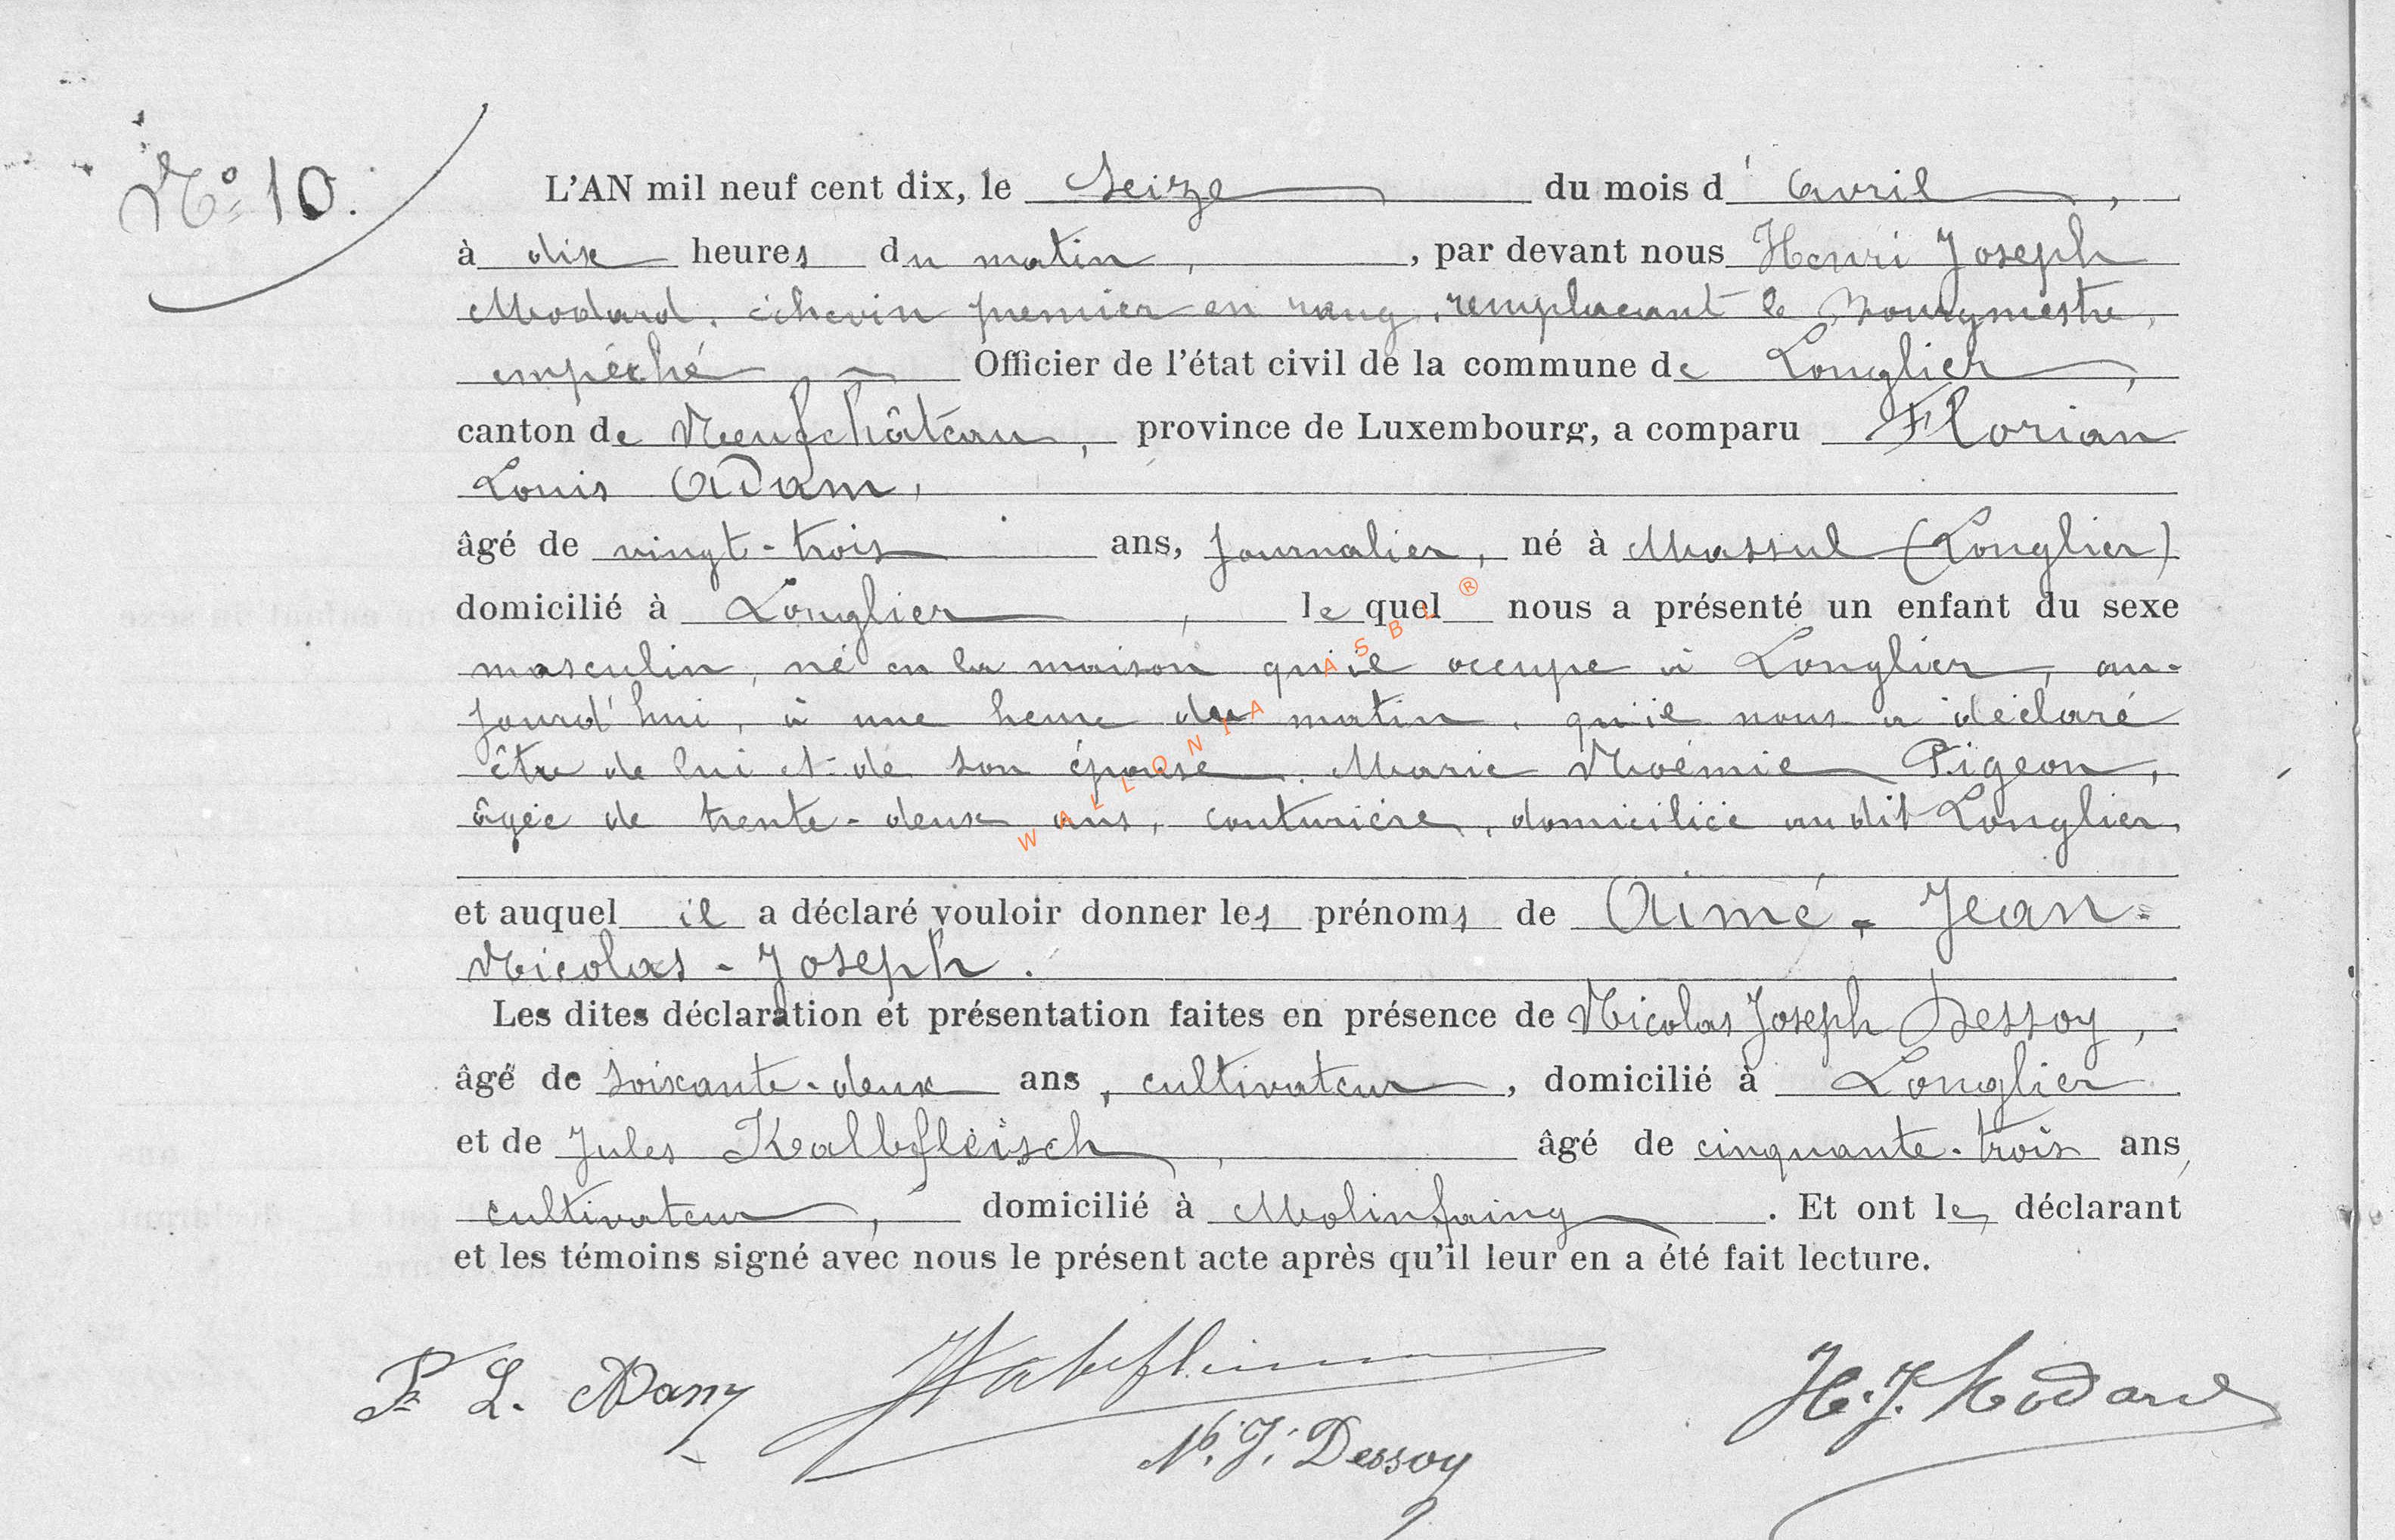 N° 10.
L'AN mil neuf cent dix, le seize du mois d'avril,
à dix heures du matin, par devant nous Henri Joseph
Modard, échevin premier en rang, remplacant le Bourgmestre,
empêché Officier de l'état civil de la commune de Longlier,
canton de Neufchâteau, province de Luxembourg, a comparu Florian
Louis Adam,
âgé de vingt-trois ans, journalier, né à Massul (Longlier)
domicilié à Longlier, lequel nous a présenté un enfant du sexe
masculin, né en la maison qu'il occupe à Longlier, au-
jourd'hui, à une heure du matin, qu'il nous a déclaré
être de lui et de son épouse, Marie Noémie Pigeon,
âgée de trente-deux ans, couturière, domiciliée au dit Longlier,
et auquel il a déclaré vouloir donner les prénoms de Aimé-Jean-
Nicolas-Joseph.
Les dites déclaration et présentation faites en présence de Nicolas Joseph Dessoy,
âgé de soixante-deux ans, cultivateur, domicilié à Longlier
et de Jules Kalbfleisch, âgé de cinquante-trois ans,
cultivateur, domicilié à Molinfaing. Et ont le, déclarant
et les témoins signé avec nous le présent acte après qu'il leur en a été fait lecture.
F. L. Adam
H. J. Modard
N. J. Dessoy
WALLONIA ASBL ®